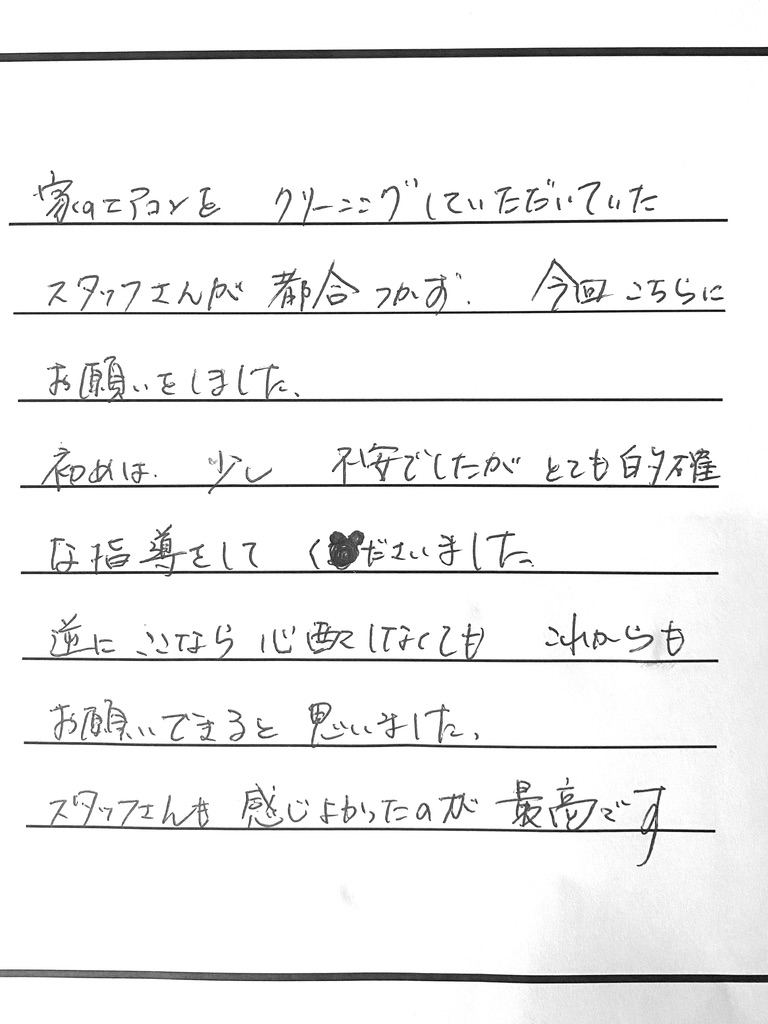 家のエアコンを クリーニングしていただいていた
スタッフさんが 都合つかず. 今回こちらに
お願いをしました、
初めは. 少し 不安でしたが とても的確
な指導をして くださいました。
逆に ここなら 心配しなくても これからも
お願いできると 思いました。
スタッフさんも 感じよかったのが 最高です